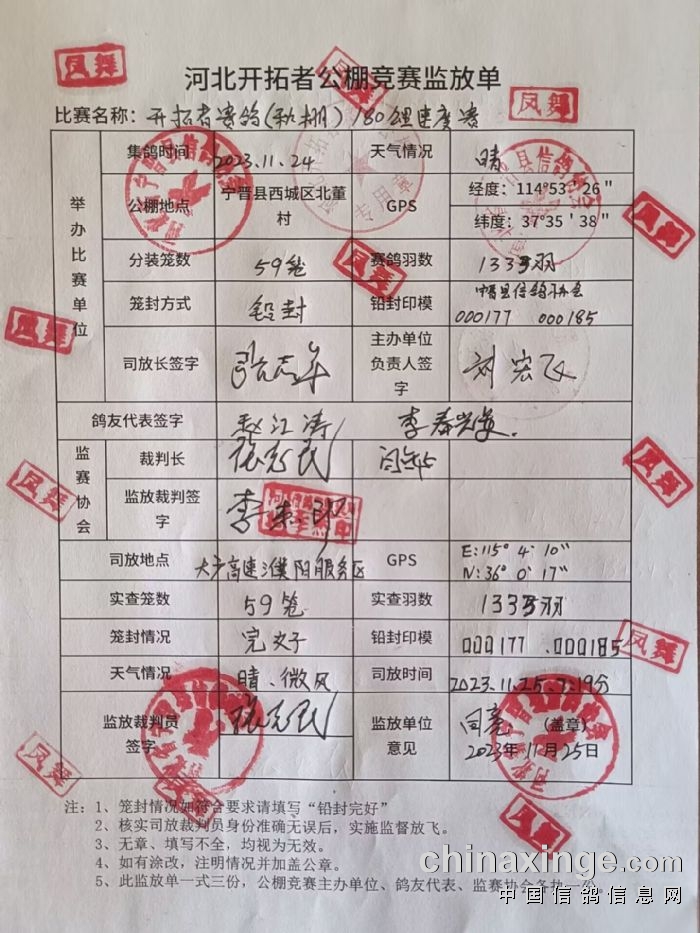 河北开拓者公棚竞赛监放单
比赛名称：开拓者赛鸽(秋棚)180公里速度赛
举办比赛单位
集鸽时间 2023.11.24 天气情况 晴
公棚地点 宁晋县西城区北董村 GPS 经度：114°53＇26＂
纬度：37°35＇38＂
分装笼数 59笼 赛鸽羽数 1335羽
笼封方式 铅封 铅封印模 宁晋县信鸽协会
000177 000185
司放长签字 主办单位负责人签字 刘宏飞
鸽友代表签字 赵江涛
监赛协会
裁判长
监放裁判签字 李
司放地点 大广高速濮阳服务区 GPS E:115° 4′ 10″
N:36° 0′ 17″
实查笼数 59笼 实查羽数 1335羽
笼封情况 完好 铅封印模 000177 .000185
天气情况 晴、微风 司放时间 2023.11.25.7.19分
监放裁判员签字 监放单位意见 (盖章)
2023年11月25日
注：1、笼封情况如符合要求请填写“铅封完好”
2、核实司放裁判员身份准确无误后，实施监督放飞。
3、无章、填写不全，均视为无效。
4、如有涂改，注明情况并加盖公章。
5、此监放单一式三份，公棚竞赛主办单位、鸽友代表、监赛协会各执一份。
凤舞
凤舞
凤舞
凤舞
凤舞
凤舞
凤舞
凤舞
凤舞
凤舞
专用章
chinaxinge.com
中国信鸽信息网